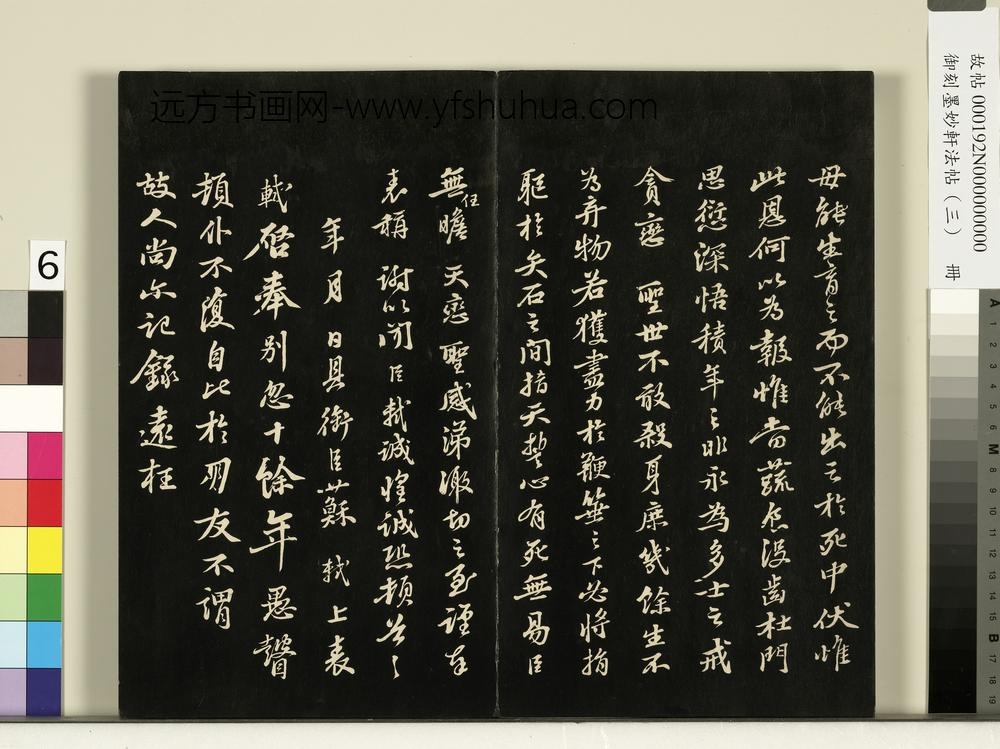 故帖000192N000000000
御刻墨妙軒法帖（三） 冊
远方书画网-www.yfshuhua.com
母能生育之而不能出之於死中伏惟
此恩何以為報惟當蔬食沒齒杜門
思愆深悟積年之非永為多士之戒
貪戀 聖世不敢殺身庶幾餘生不
為弃物若獲盡力於鞭箠之下必將捐
軀於矢石之間指天誓心有死無易臣
無任瞻 天戀 聖感涕激切之至謹奉
表稱 謝以聞臣軾誠惶誠恐頓首々
年月 日具銜臣蘇 軾 上表
軾啓奉別忽十餘年愚瞽
頓仆不復自比於朋友不謂
故人尚尓記錄遠枉
6
A 1 2 3 4 5 6 M 8 9 10 11 12 13 14 15 B 17 18 19